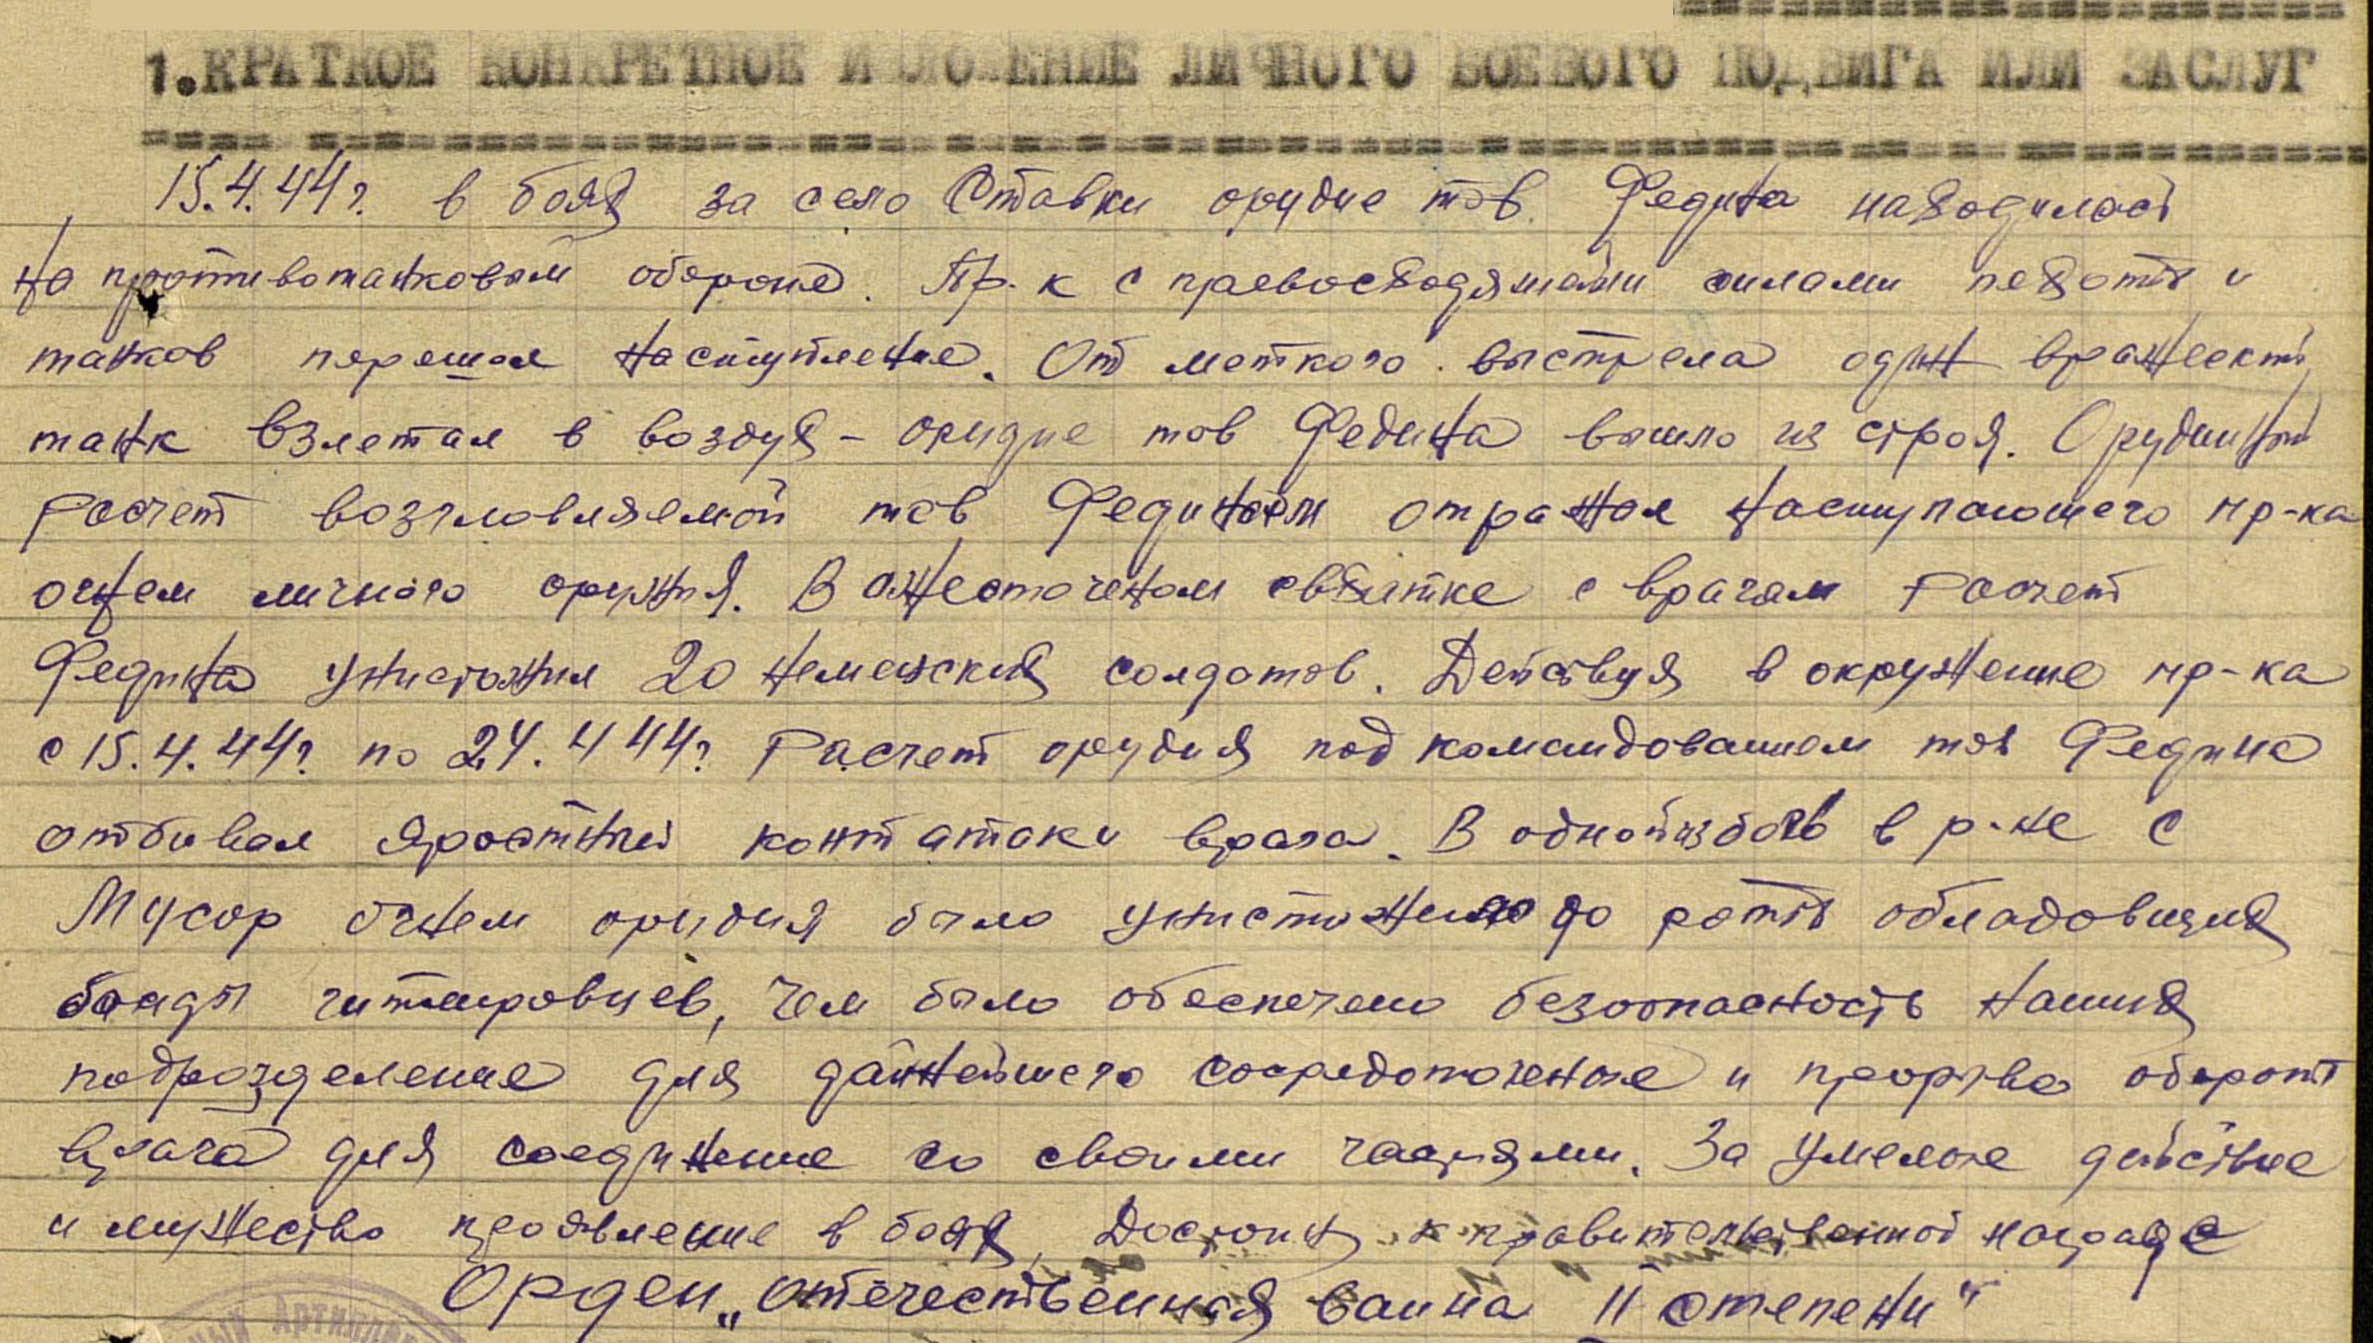 1. КРАТКОЕ КОНКРЕТНОЕ ИЗЛОЖЕНИЕ ЛИЧНОГО БОЕВОГО ПОДВИГА ИЛИ ЗАСЛУГ
15.4.44г. в боях за село Ставки орудие тов. Федина находилась
на противотанковом обороне. Пр-к с превосходящими силами пехоты и
танков перешол наступление. От меткого выстрела один вражеский
танк взлетал в воздух - орудие тов Федина вышло из строя. Орудийный
Расчет возглавляемой тов Фединым отражал наступающего пр-ка
огнем личного оружия. В ожесточеном схватке с врагам Расчет
Федина уничтожил 20 немецких солдатов. Действуя в окружение пр-ка
с 15.4.44г. по 24.4 44г. Расчет орудия под командованием тов Федина
отбивал яростный контатаки врага. В одной из боев в р-не с
Мусор огнем орудия было уничтожено до роты
банды гитлеровцев, чем было обеспечено безопасность наших
подразделение для сосредоточение и прорыва обороны
врага для соединение со своими частями. За умелое действие
и мужество проявление в боях, Достоин к правительственной награде
Орден „Отечественная ваина II степени"
Артилле